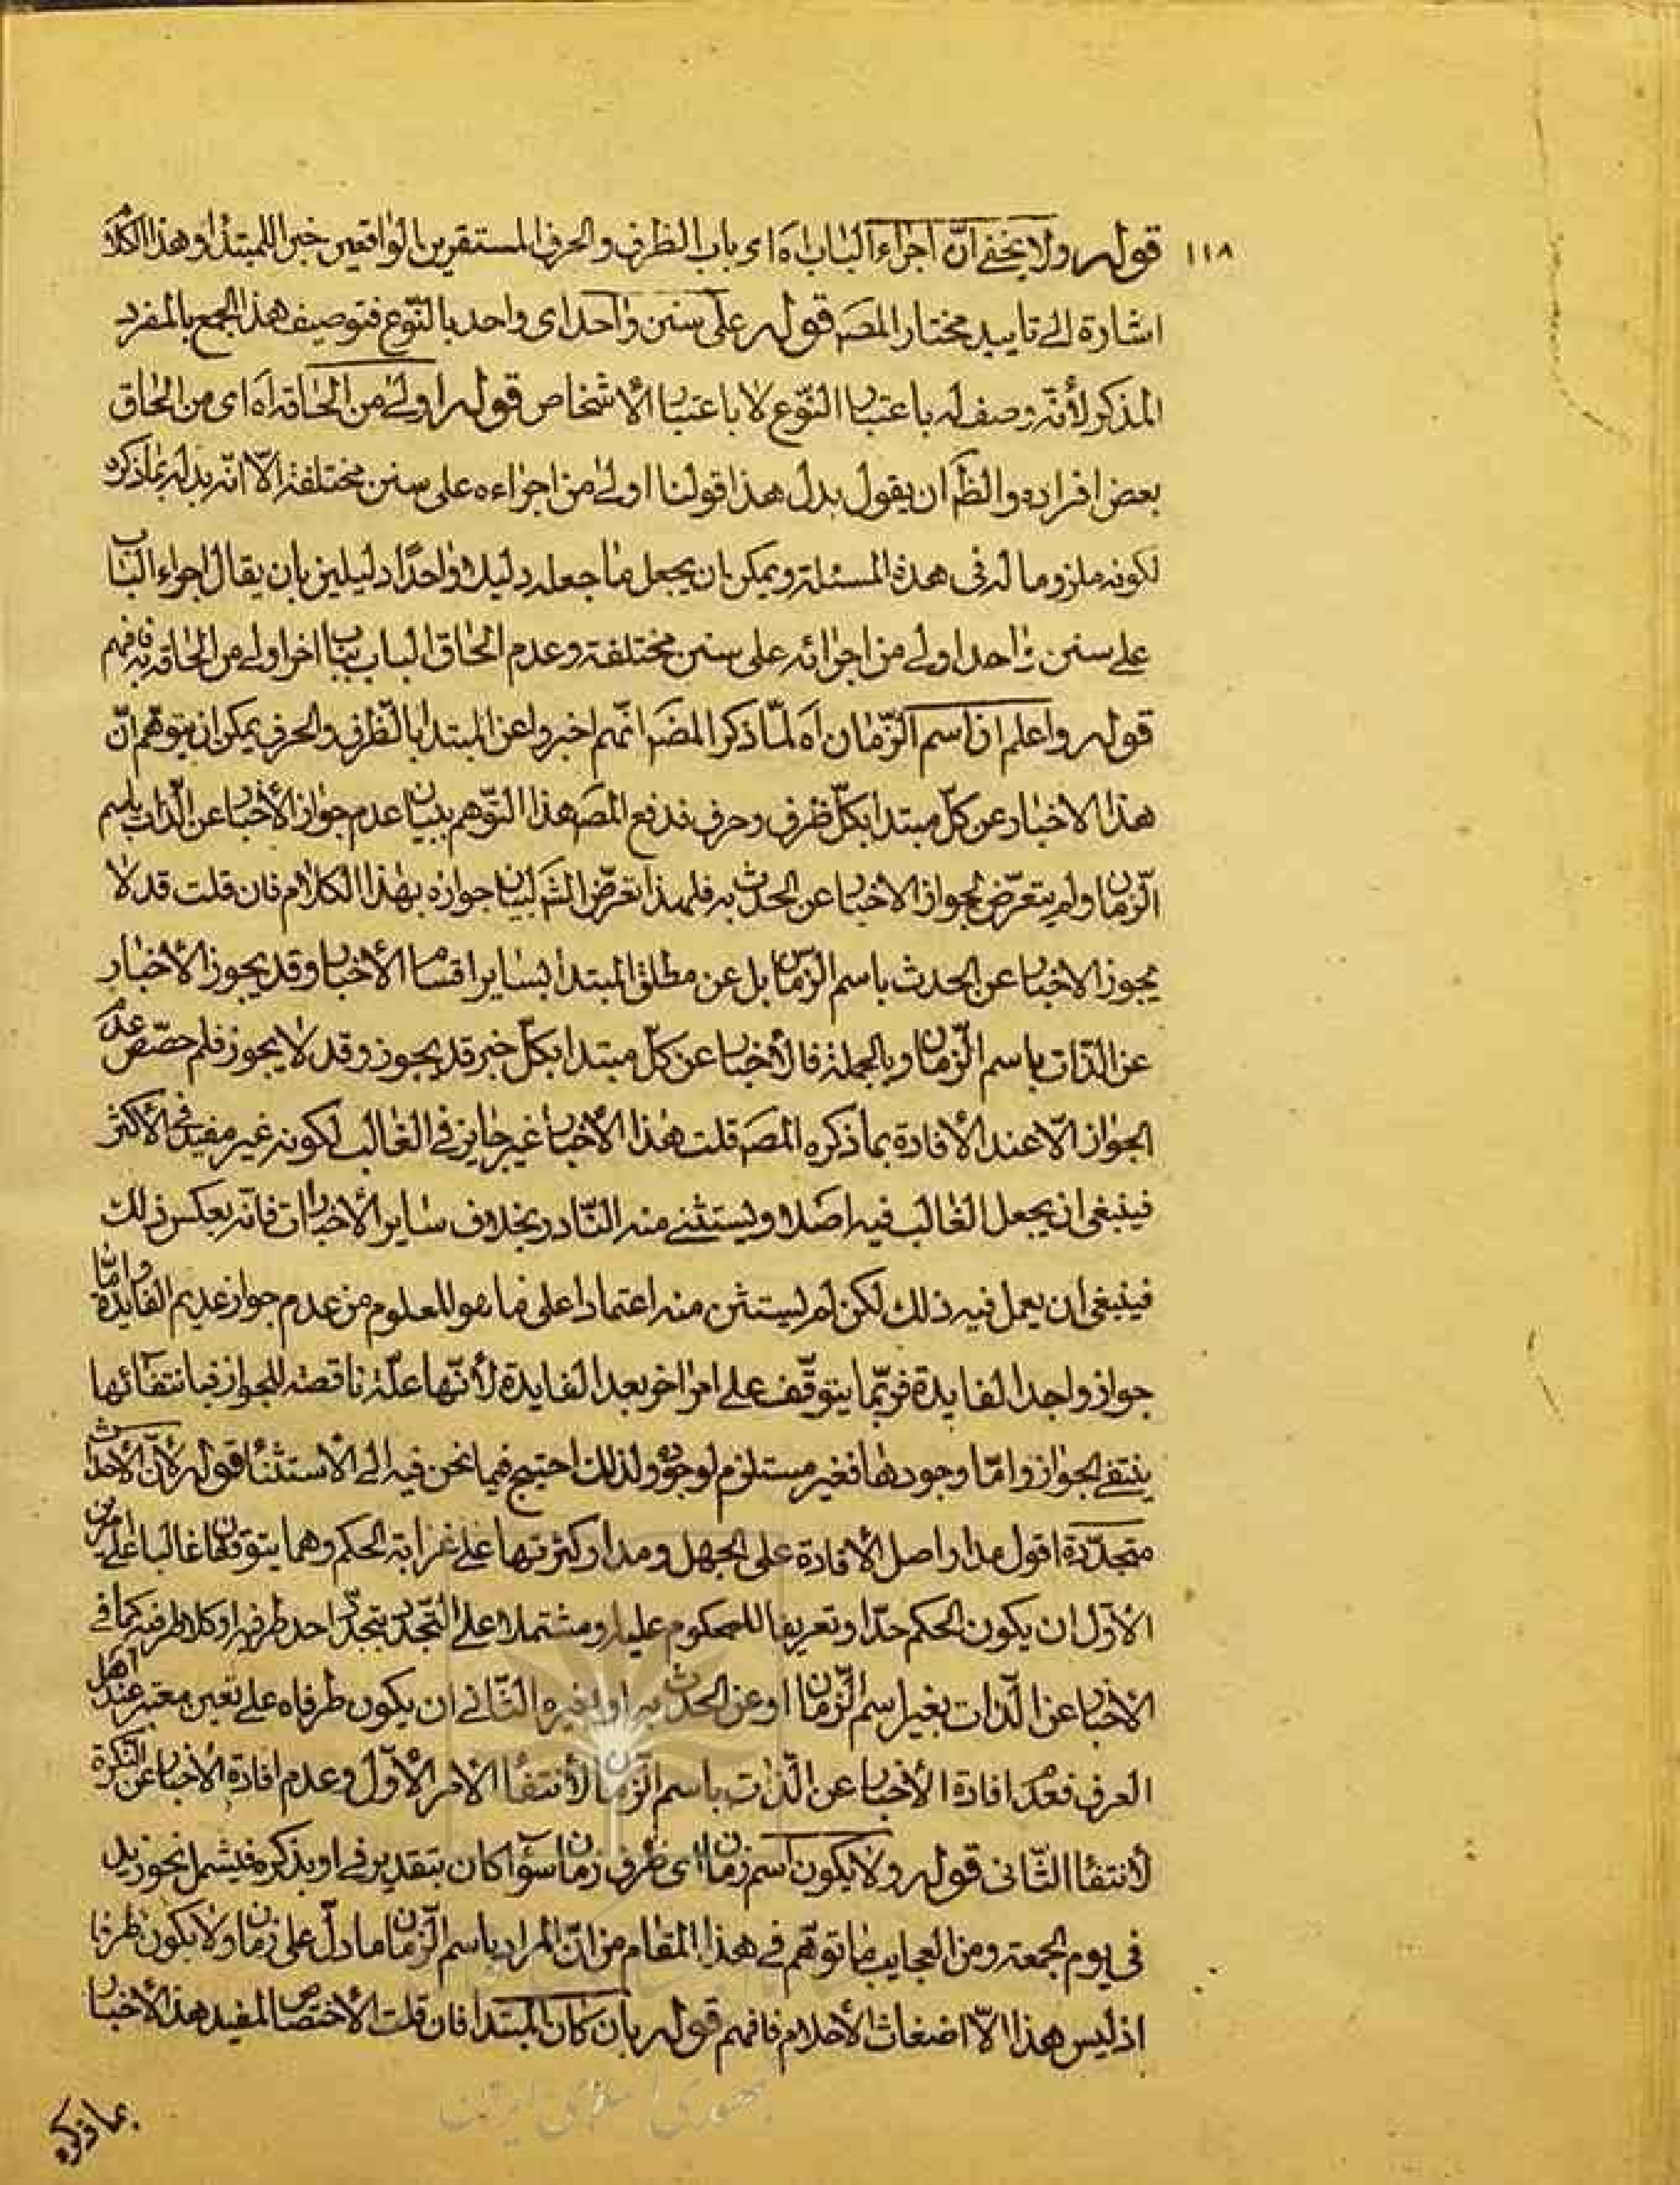 ١١٨ قوله ولا يخفى انّ اجراء الباب اه اى باب الظرف والحرف المستقرين الواقعين خبرا للمبتدا وهذا الكلام
اشارة الى تاييد مختار المصَ قوله على سنن واحد اى واحد بالنّوع فتوصيف هذا الجمع بالمفرد
المذكر لأنّه وصف له باعتبار النّوع لا باعتبار الأشخاص قوله اولى من الحاقه اه اى من الحاق
بعض افراده والظَ ان يقول بدل هذا قولنا اولى من اجراءه على سنن مختلفة الّا انّه بدله بما ذكره
لكونه ملزوما له فى هذه المسئلة ويمكن ان يجعل ما جعله دليلا واحدًا دليلين بان يقال اجراء الباب
على سنن واحد اولى من اجرائه على سنن مختلفة وعدم الحاق الباب بباب اخر اولى من الحاقه به فافهم
قوله واعلم ان اسم الزّمان اه لمّا ذكر المصَ انّهم اخبروا عن المبتدا بالظّرف والحرف يمكن ان يتوهّم انّ
هذا الاخبار عن كلّ مبتدا بكلّ ظرف وحرف فدفع المصَ هذا التّوهم ببيان عدم جواز الأخبار عن الذّات باسم
الزّمان ولم يتعرّض لجواز الاخبار عن الحدث به فلهذا تعرّض الشَ لبيان جوازه بهذا الكلام فان قلت قد لا
يجوز الاخبار عن الحدث باسم الزّمان بل عن مطلق المبتدا بساير اقسام الأخبار وقد يجوز الأخبار
عن الذّات باسم الزّمان وبالجملة فالأخبار عن كلّ مبتدا بكلّ خبر قد يجوز وقد لا يجوز فلم خصّص عدم
الجواز الّا عند الأفادة بما ذكره المصَ قلت هذا الأخبار غير جايز فى الغالب لكونه غير مفيد فى الأكثر
فينبغى ان يجعل الغالب فيه اصلا ويستثنى منه النّادر بخلاف ساير الأخبارات فانّه بعكس ذلك
فينبغى ان يعمل فيه ذلك لكن لم يستثن منه اعتمادا على ما هو المعلوم من عدم جواز عديم الفايدة وامّا
جواز واجد الفايدة فربّما يتوقّف على امر اخر بعد الفايدة لأنّها علّة ناقصة للجواز فبانتفائها
ينتفى الجواز وامّا وجودها فغير مستلزم لوجوده ولذلك احتيج فيما نحن فيه الى الأستثناء قوله لأنّ الأحداث
متجدّدة اقول مدار اصل الأفادة على الجهل ومدار كثرتها على غرابة الحكم وهما يتوقفان غالبا على امرين
الأوّل ان يكون الحكم حدّا وتعريفا للمحكوم عليه او مشتملا على التّجدد بتجدّد احد طرفيه او كلا طرفيه كما فى
الأخبار عن الذّات بغير اسم الزّمان او عن الحدث به او بغيره الثّانى ان يكون طرفاه على تعين معتبر عند اهل
العرف فعدم افادة الأخبار عن الذّات باسم الزّمان لأنتفاء الأمر الأوّل وعدم افادة الأخبار عن النّكرة
لأنتفاء الثّانى قوله ولا يكون اسم زمان اى ظرف زمان سواء كان بتقدير فى او بذكره فيشمل نحو زيد
فى يوم الجمعة ومن العجايب ما توهّم فى هذا المقام من انّ المراد باسم الزّمان ما دلّ على زمان ولا يكون ظرفا
اذ ليس هذا الّا اضغاث الأحلام فافهم قوله بان كان المبتدا فان قلت الأختصاص المفيد هذا الأخبار
بما ذكره
جمهورى اسلامى ايران